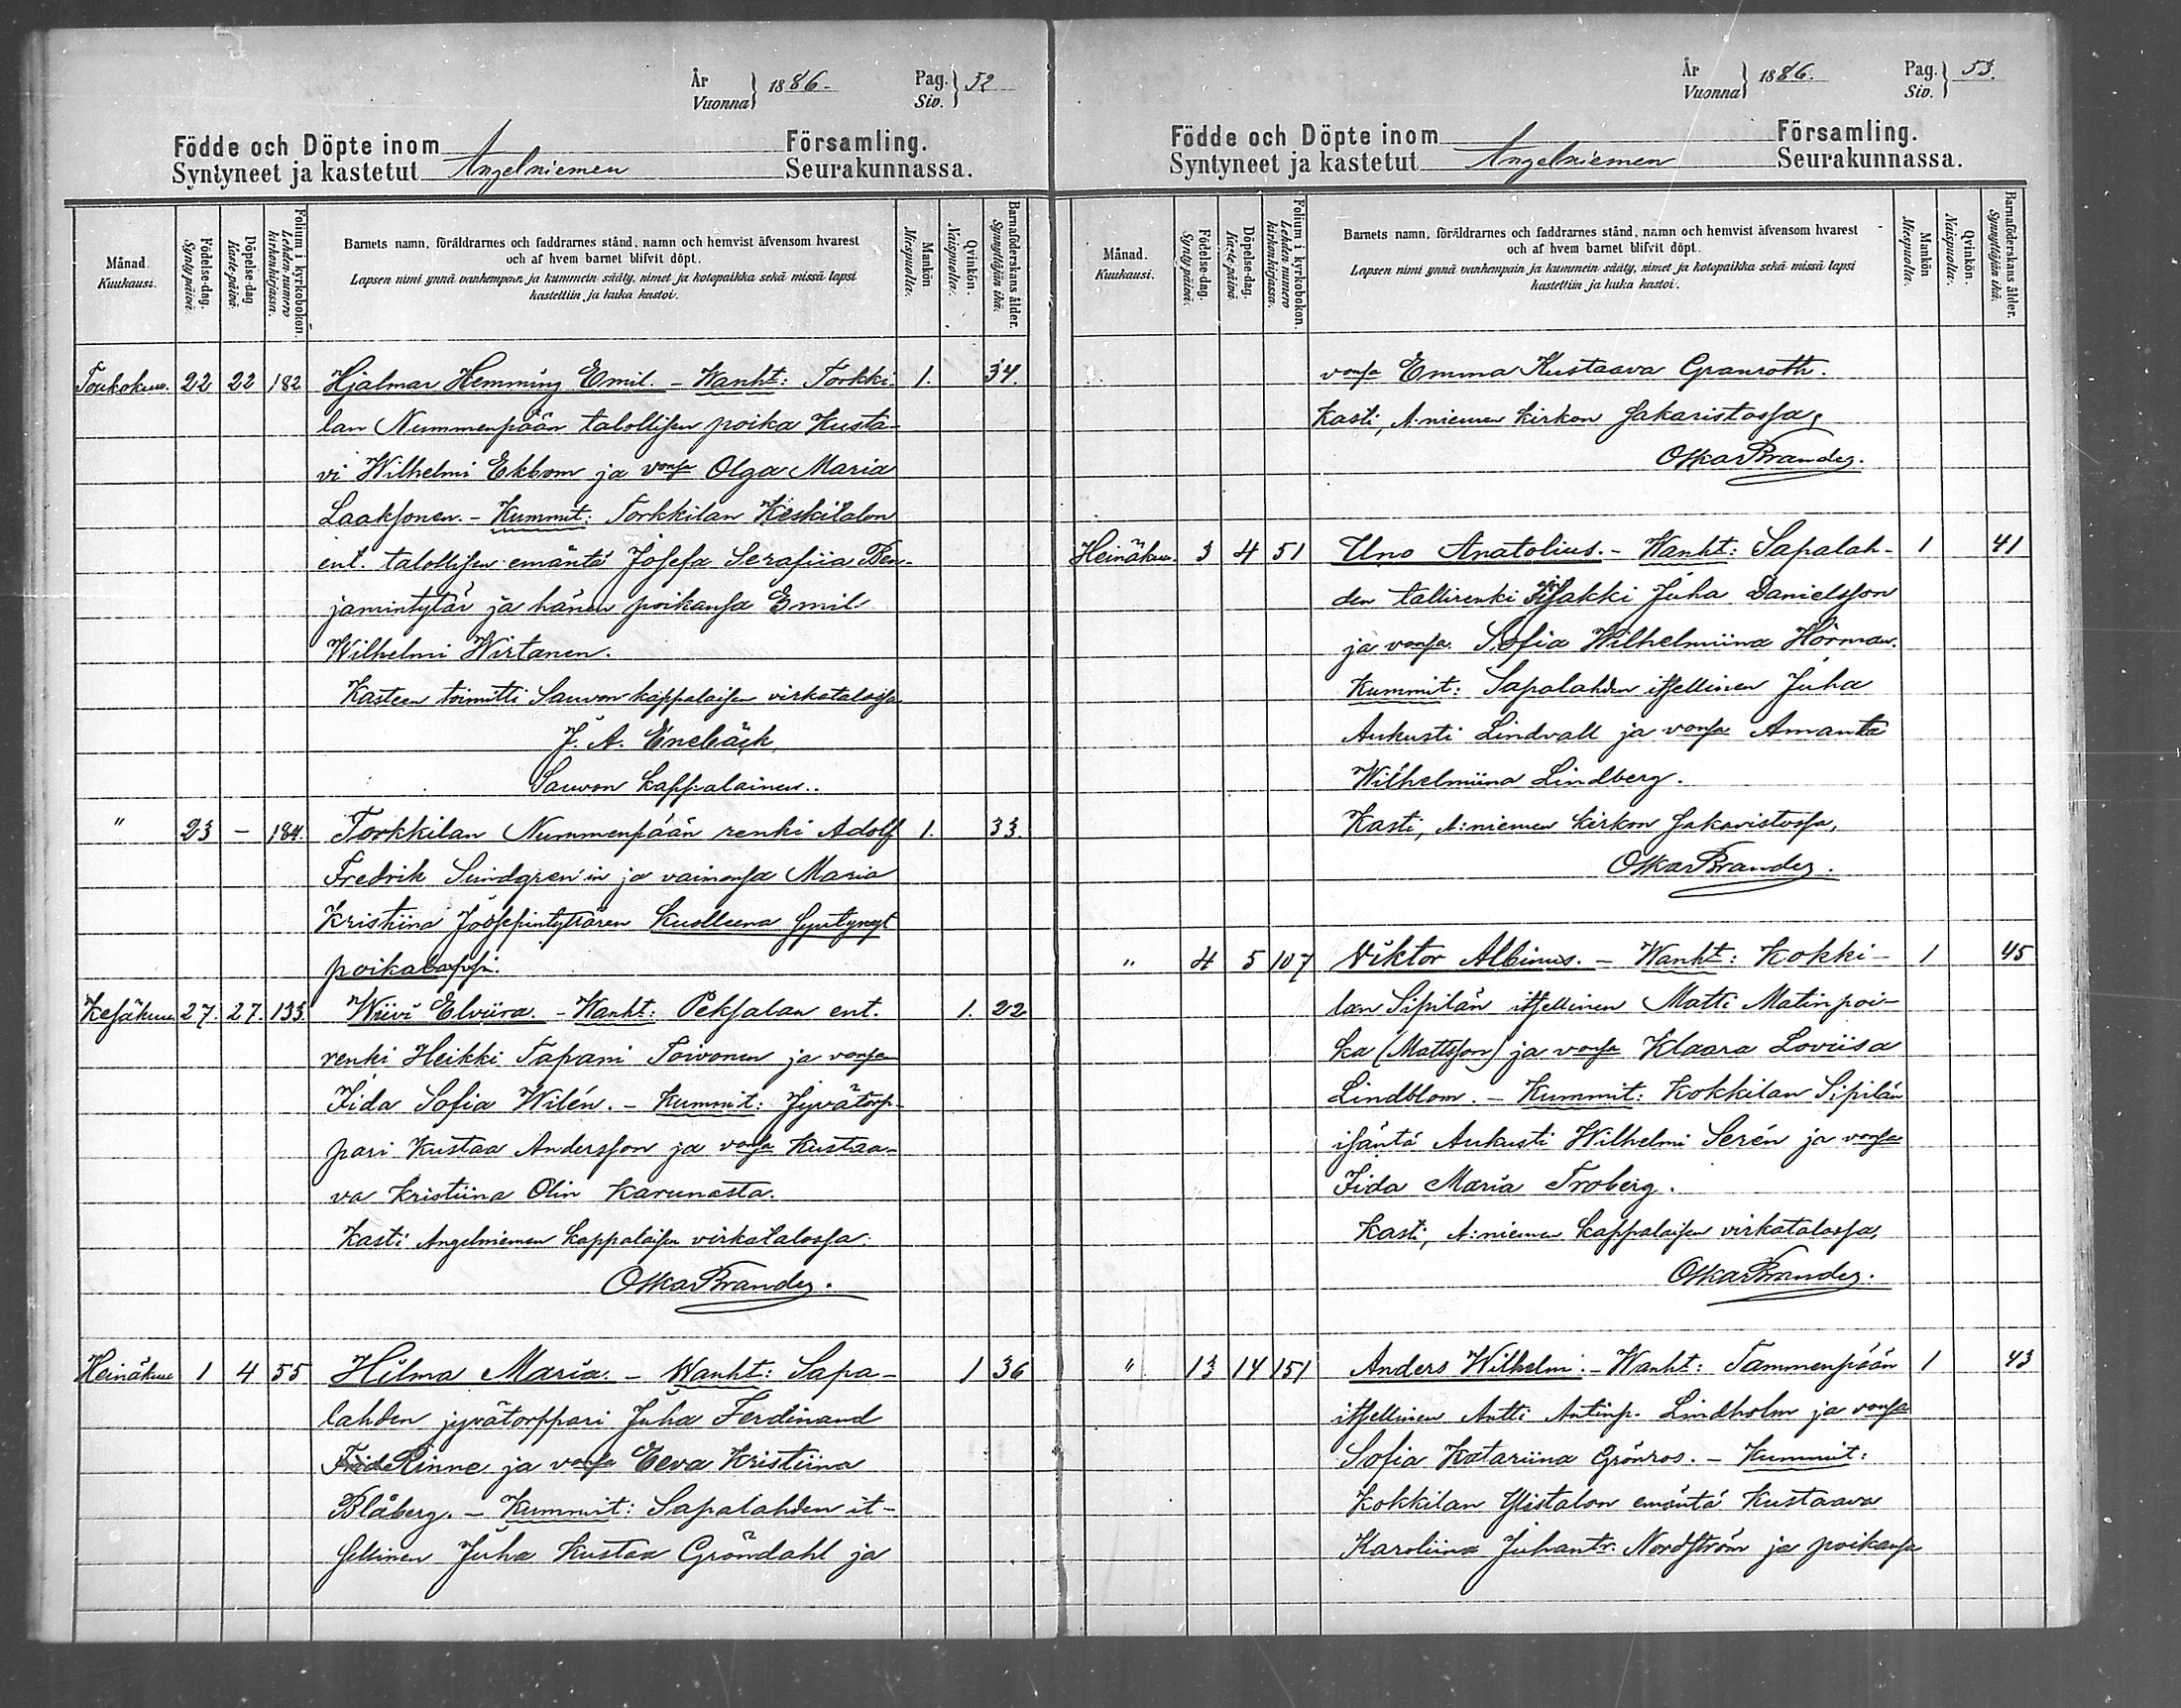 År
Vuonna } 1886.
Pag.
Siv. } 52
Födde och Döpte inom Församling.
Syntyneet ja kastetut Angelniemen Seurakunnassa.
Månad.
Kuukausi.
Födelse-dag.
Syntypäivä.
Döpelse-dag.
Kaste-päivä.
Folium i kyrkobokon.
Lehden numero
kirkonkirjassa.
Barnets namn, föräldrarnes och faddrarnes stånd, namn och hemvist äfvensom hvarest
och af hvem barnet blifvit döpt.
Lapsen nimi ynnä vanhempain ja kummein sääty, nimet ja kotopaikka sekä missä lapsi
kastettiin ja kuka kastoi.
Mankön
Miespuolta.
Qvinkön.
Naispuolta.
Barnaföderskans ålder.
Synnyttäjän ikä.
Toukokuu. 22 22 182 Hjalmar Hemming Emil. - Wanht: Torkki- 1. 34.
lan Nummenpään talollisen poika Kusta-
vi Wilhelmi Ekbom ja vonsa Olga Maria
Laaksonen. - Kummit: Torkkilan Keskitalon
ent. talollisen emäntä Josefa Serafiia Ben-
jamintytär ja hänen poikansa Emil
Wilhelmi Wirtanen.
Kasteen toimitti Sauvon kappalaisen virkatalossa
J. A. Enebäck,
Sauvon kappalainen.
" 23 - 184. Torkkilan Nummenpään renki Adolf 1. 33.
Fredrik Sundgren'in ja vaimonsa Maria
Kristiina Joosepintyttären kuolleena syntynyt
poikalapsi.
Kesäkuu 27. 27. 133 Wiivi Elviira. - Wanht: Peksalan ent. 1. 22
renki Heikki Tapani Toivonen ja vonsa
Iida Sofia Wilén. - Kummit: Jyvätorp-
pari Kustaa Andersson ja vonsa Kustaa-
va Kristiina Olin Karunasta.
Kasti Angelniemen kappalaisen virkatalossa.
Oskar Brander.
Heinäkuu 1 4 55 Hilma Maria. - Wanht: Sapa- 1 36
lahden jyvätorppari Juha Ferdinand
Rinne ja vonsa Eeva Kristiina
Blåberg. - Kummit: Sapalahden it-
sellinen Juha Kustaa Gröndahl ja
År
Vuonna } 1886.
Pag.
Siv. } 53.
Födde och Döpte inom Församling.
Syntyneet ja kastetut Angelniemen Seurakunnassa.
Månad.
Kuukausi.
Födelse-dag.
Syntypäivä.
Döpelse-dag.
Kaste-päivä.
Folium i kyrkobokon.
Lehden numero
kirkonkirjassa.
Barnets namn, föräldrarnes och faddrarnes stånd, namn och hemvist äfvensom hvarest
och af hvem barnet blifvit döpt.
Lapsen nimi ynnä vanhempain ja kummein sääty, nimet ja kotopaikka sekä missä lapsi
kastettiin ja kuka kastoi.
Mankön
Miespuolta.
Qvinkön.
Naispuolta.
Barnaföderskans ålder.
Synnyttäjän ikä.
vonsa Emma Kustaava Granroth.
Kasti, A:niemen kirkon sakaristossa,
Oskar Brander.
Heinäkuu. 3 4 51 Uno Anatolius. - Wanht: Sapalah- 1 41
den tallirenki Iisakki Juha Danielsson
ja vonsa Sofia Wilhelmiina Hörman.
Kummit: Sapalahden itsellinen Juha
Aukusti Lindvall ja vonsa Amanta
Wilhelmiina Lindberg.
Kasti, A:niemen kirkon sakaristossa,
Oskar Brander.
" 4 5 107 Viktor Albinus. - Wanht: Kokki- 1 45
lan Sipilän itsellinen Matti Matinpoi-
ka (Mattsson) ja vonsa Klaara Loviisa
Lindblom. - Kummit: Kokkilan Sipilän
isäntä Aukusti Wilhelmi Serén ja vonsa
Iida Maria Troberg.
Kasti, A:niemen kappalaisen virkatalossa,
Oskar Brander.
" 13 14 151 Anders Wilhelm. - Wanht: Tammenpään 1 43
itsellinen Antti Antinp. Lindholm ja vonsa
Sofia Katariina Grönros. - Kummit:
Kokkilan Ylistalon emäntä Kustaava
Karoliina Juhantr. Nordström ja poikansa